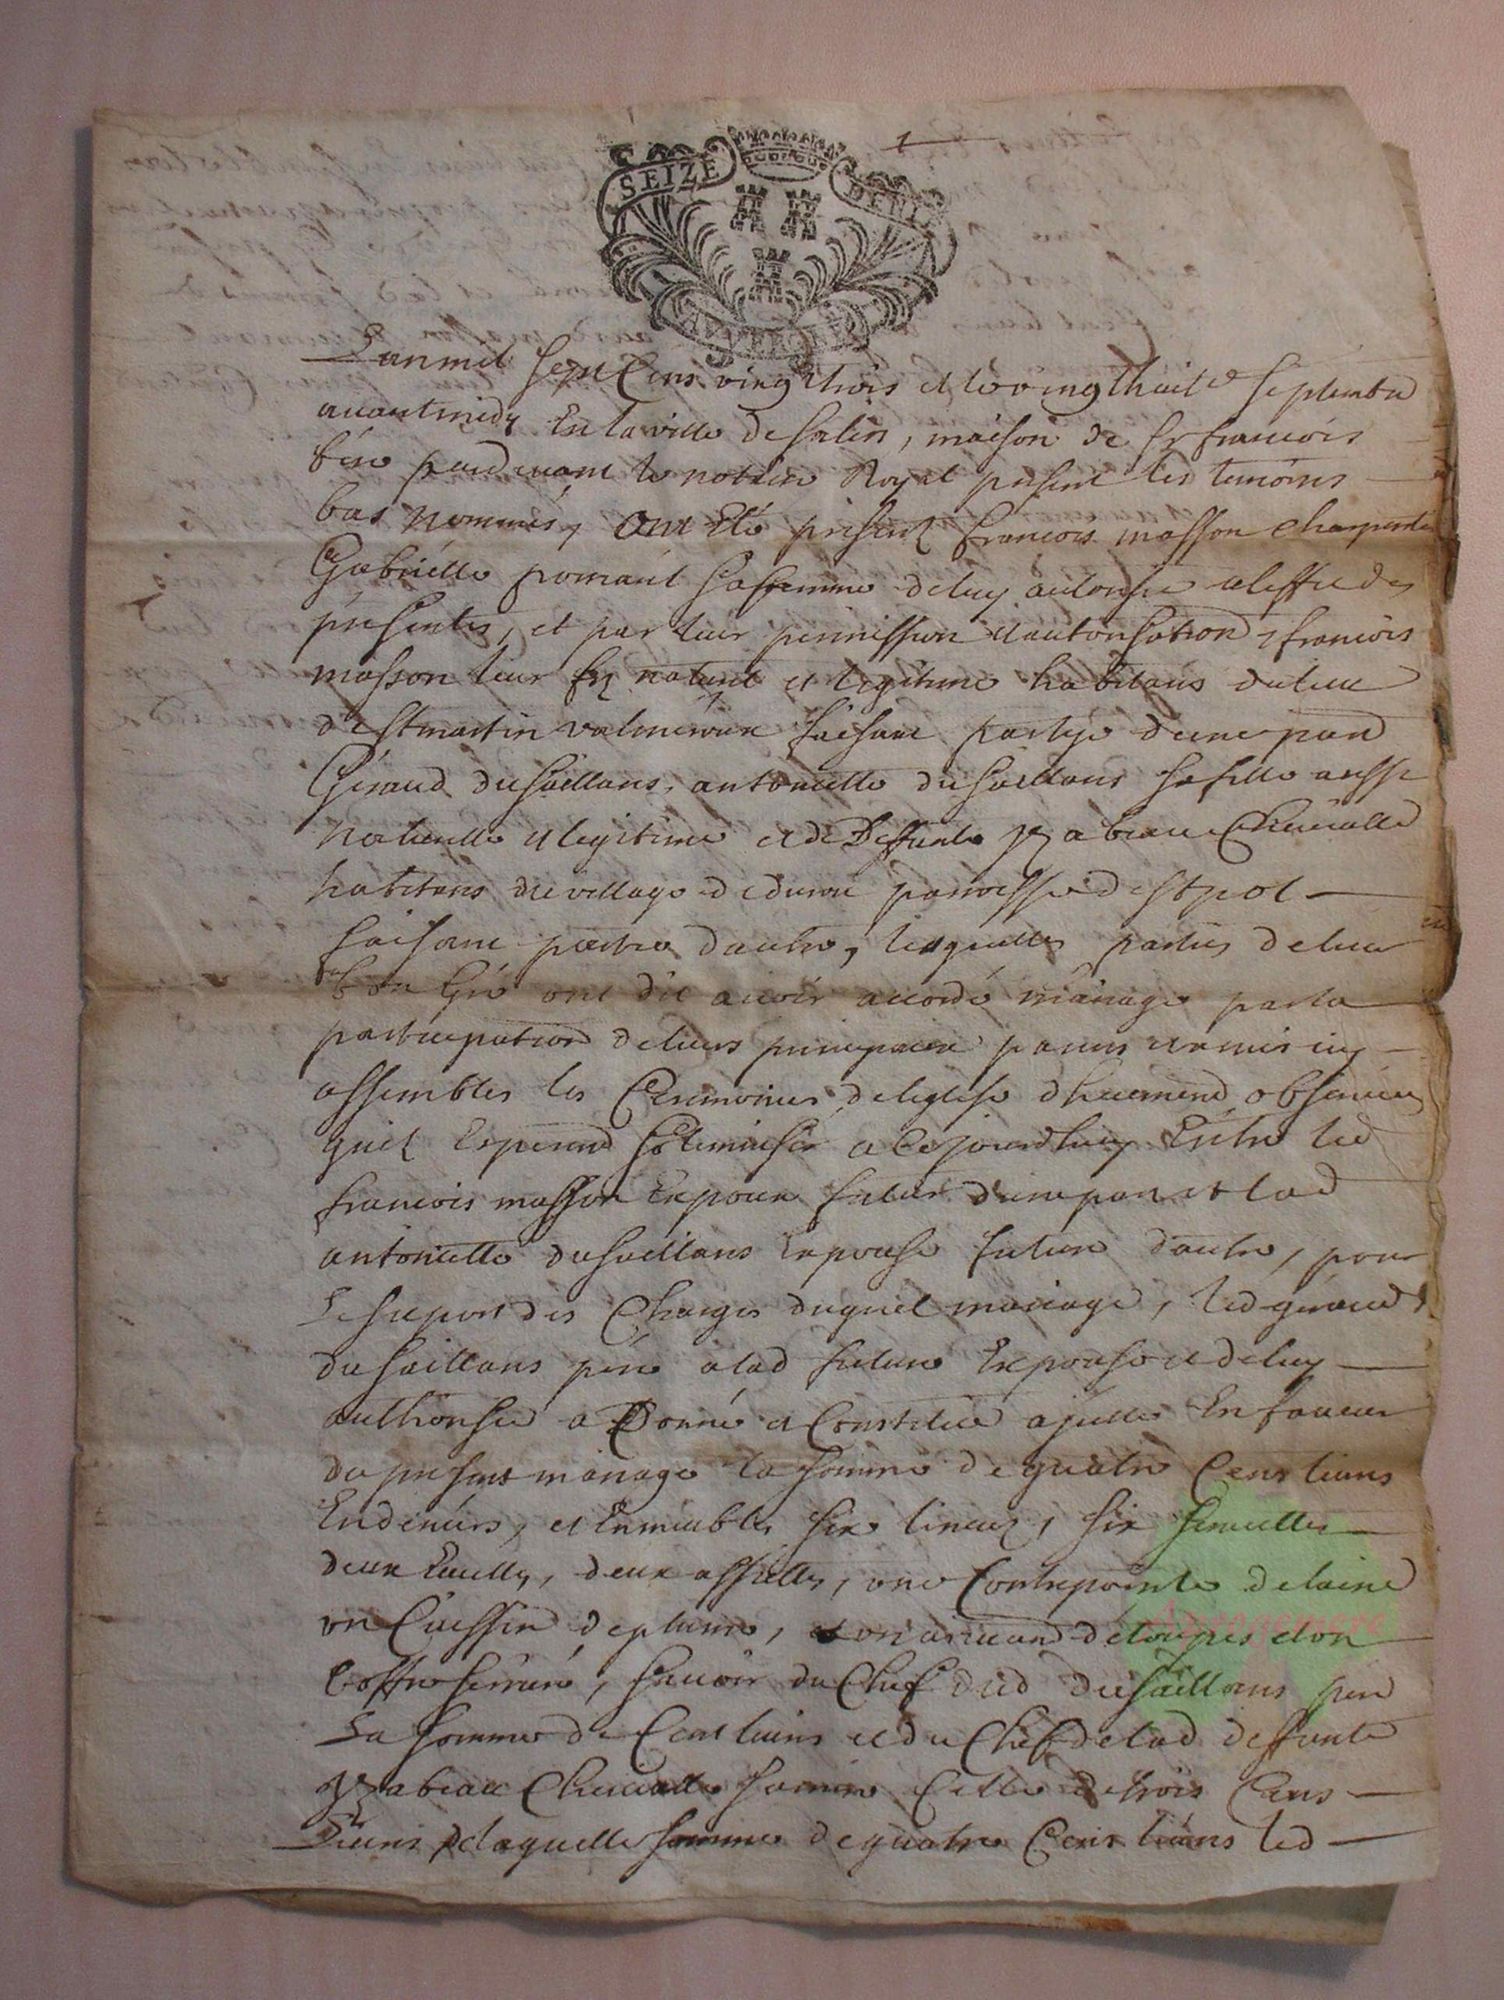 SEIZE DENI
AUVERGNE
Lanmil sept Cens vingt trois et le vingthuite septembre
auantmidy En la ville de salers, maison de sr francois
pardeuant le notaire Royal present les temoins
bas nommés, ont Eté present francois masson charpentier
Gabrielle promaul sa femme deluy autorisée aleffet des
presentes, et par leur permission et autorisation, francois
masson leur fils naturel et legitime habitans du lieu
de St martin valmeroux faisant partye dune part
Géraud dusaillans, antoinette dusaillans sa fille aussi
naturelle et legitime et de Deffunte yzabeau Cheuialle
habitans du village de paroisse de St pol
faisant partie dautre, lesquelles parties de leur
bon Gré ont dit auoir accordé mariage par la
participation de leurs principaux parens et amis icy
assembles les Ceremonies de leglise dheuement obseruées
quil Esperent solemniser a Cejourdhuy Entre led
francois masson Expoux futur dune part et lad
antoinette dusaillans Expouse future dautre, pour
le suport des Charges duquel mariage, led géraud
dusaillans pere a lad future Expouse et deluy
authorisée a Donné et Constitué a jcelle En faueur
du present mariage la somme de quatre Cens liures
En deniers, et En meubles six linceuls, six seruiettes
deux Ecuelles, deux assiettes, une Contrepointe de laine
un Cuissin de plume, et un de toupes et un
Coffre ferré, sauoir du Chef dud dusaillans pere
La somme de Cent liures et du Chef de lad deffunte
yzabeau Cheuialle sa mere Celle de trois Cens
Liures, de laquelle somme de quatre Cens liures led